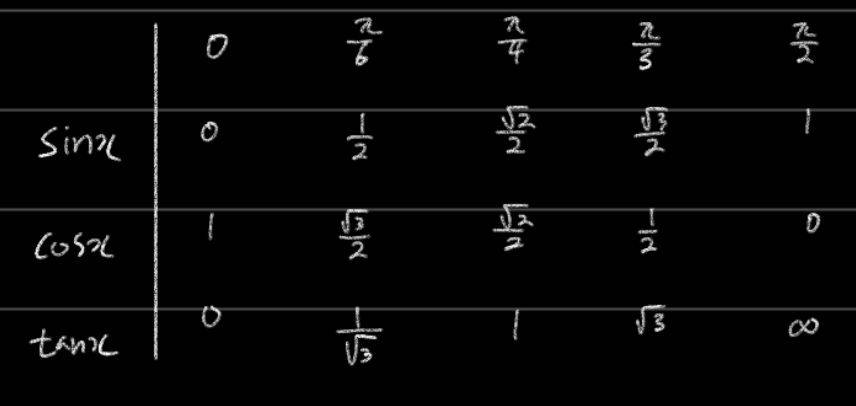 0 π/6 π/4 π/3 π/2
sinx 0 1/2 √2/2 √3/2 1
cosx 1 √3/2 √2/2 1/2 0
tanx 0 1/√3 1 √3 ∞